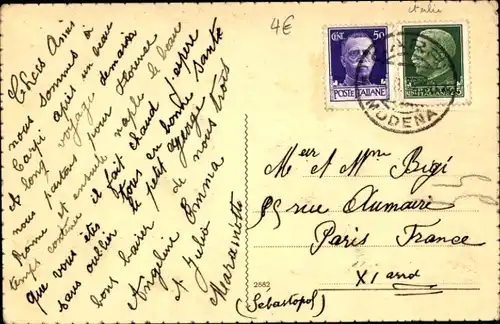 Italie
4€
Chers Amis
nous sommes à
Carpi après un beau
et long voyage demain
nous partons pour
Rome et ensuite naples le beau
temps continue il fait chaud j'espère
que vous êtes tous en bonne santé
sans oublier le petit George
bons baiser de nous trois
Angeline Emma
et Julio
CENT. 50
POSTE ITALIANE
MODENA
Meur et Mme Bigi
rue Aumaire
Paris France
XI and
(Sébastopol)
2582